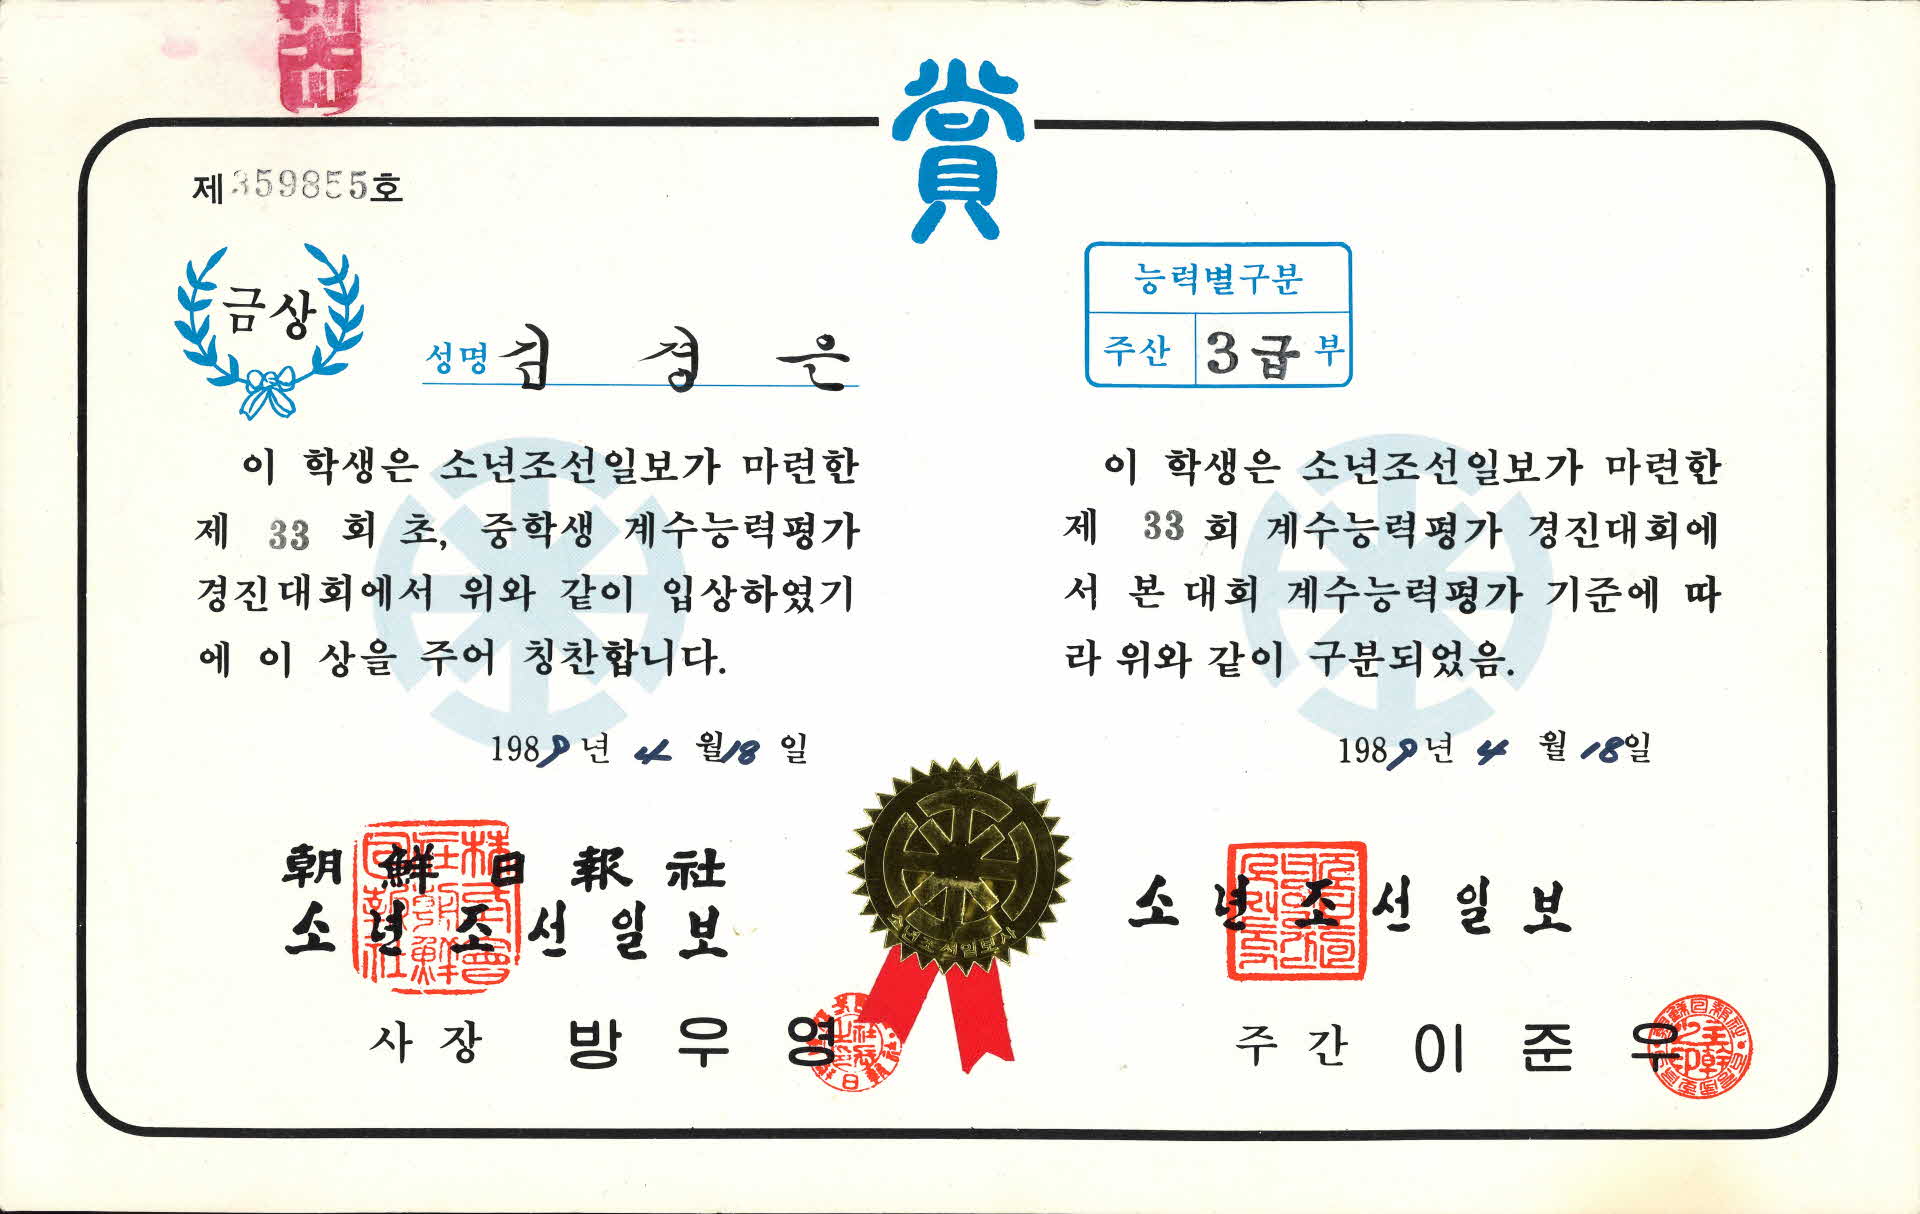 賞
제359855호
금상
성명 김경은
이 학생은 소년조선일보가 마련한
제 33 회 초, 중학생 계수능력평가
경진대회에서 위와 같이 입상하였기
에 이 상을 주어 칭찬합니다.
1989년 4월 18일
朝鮮日報社
소년조선일보
사장 방우영
능력별구분
주산 3급 부
이 학생은 소년조선일보가 마련한
제 33 회 계수능력평가 경진대회에
서 본 대회 계수능력평가 기준에 따
라 위와 같이 구분되었음.
1989년 4월 18일
소년조선일보
주간 이준우
소년조선일보사